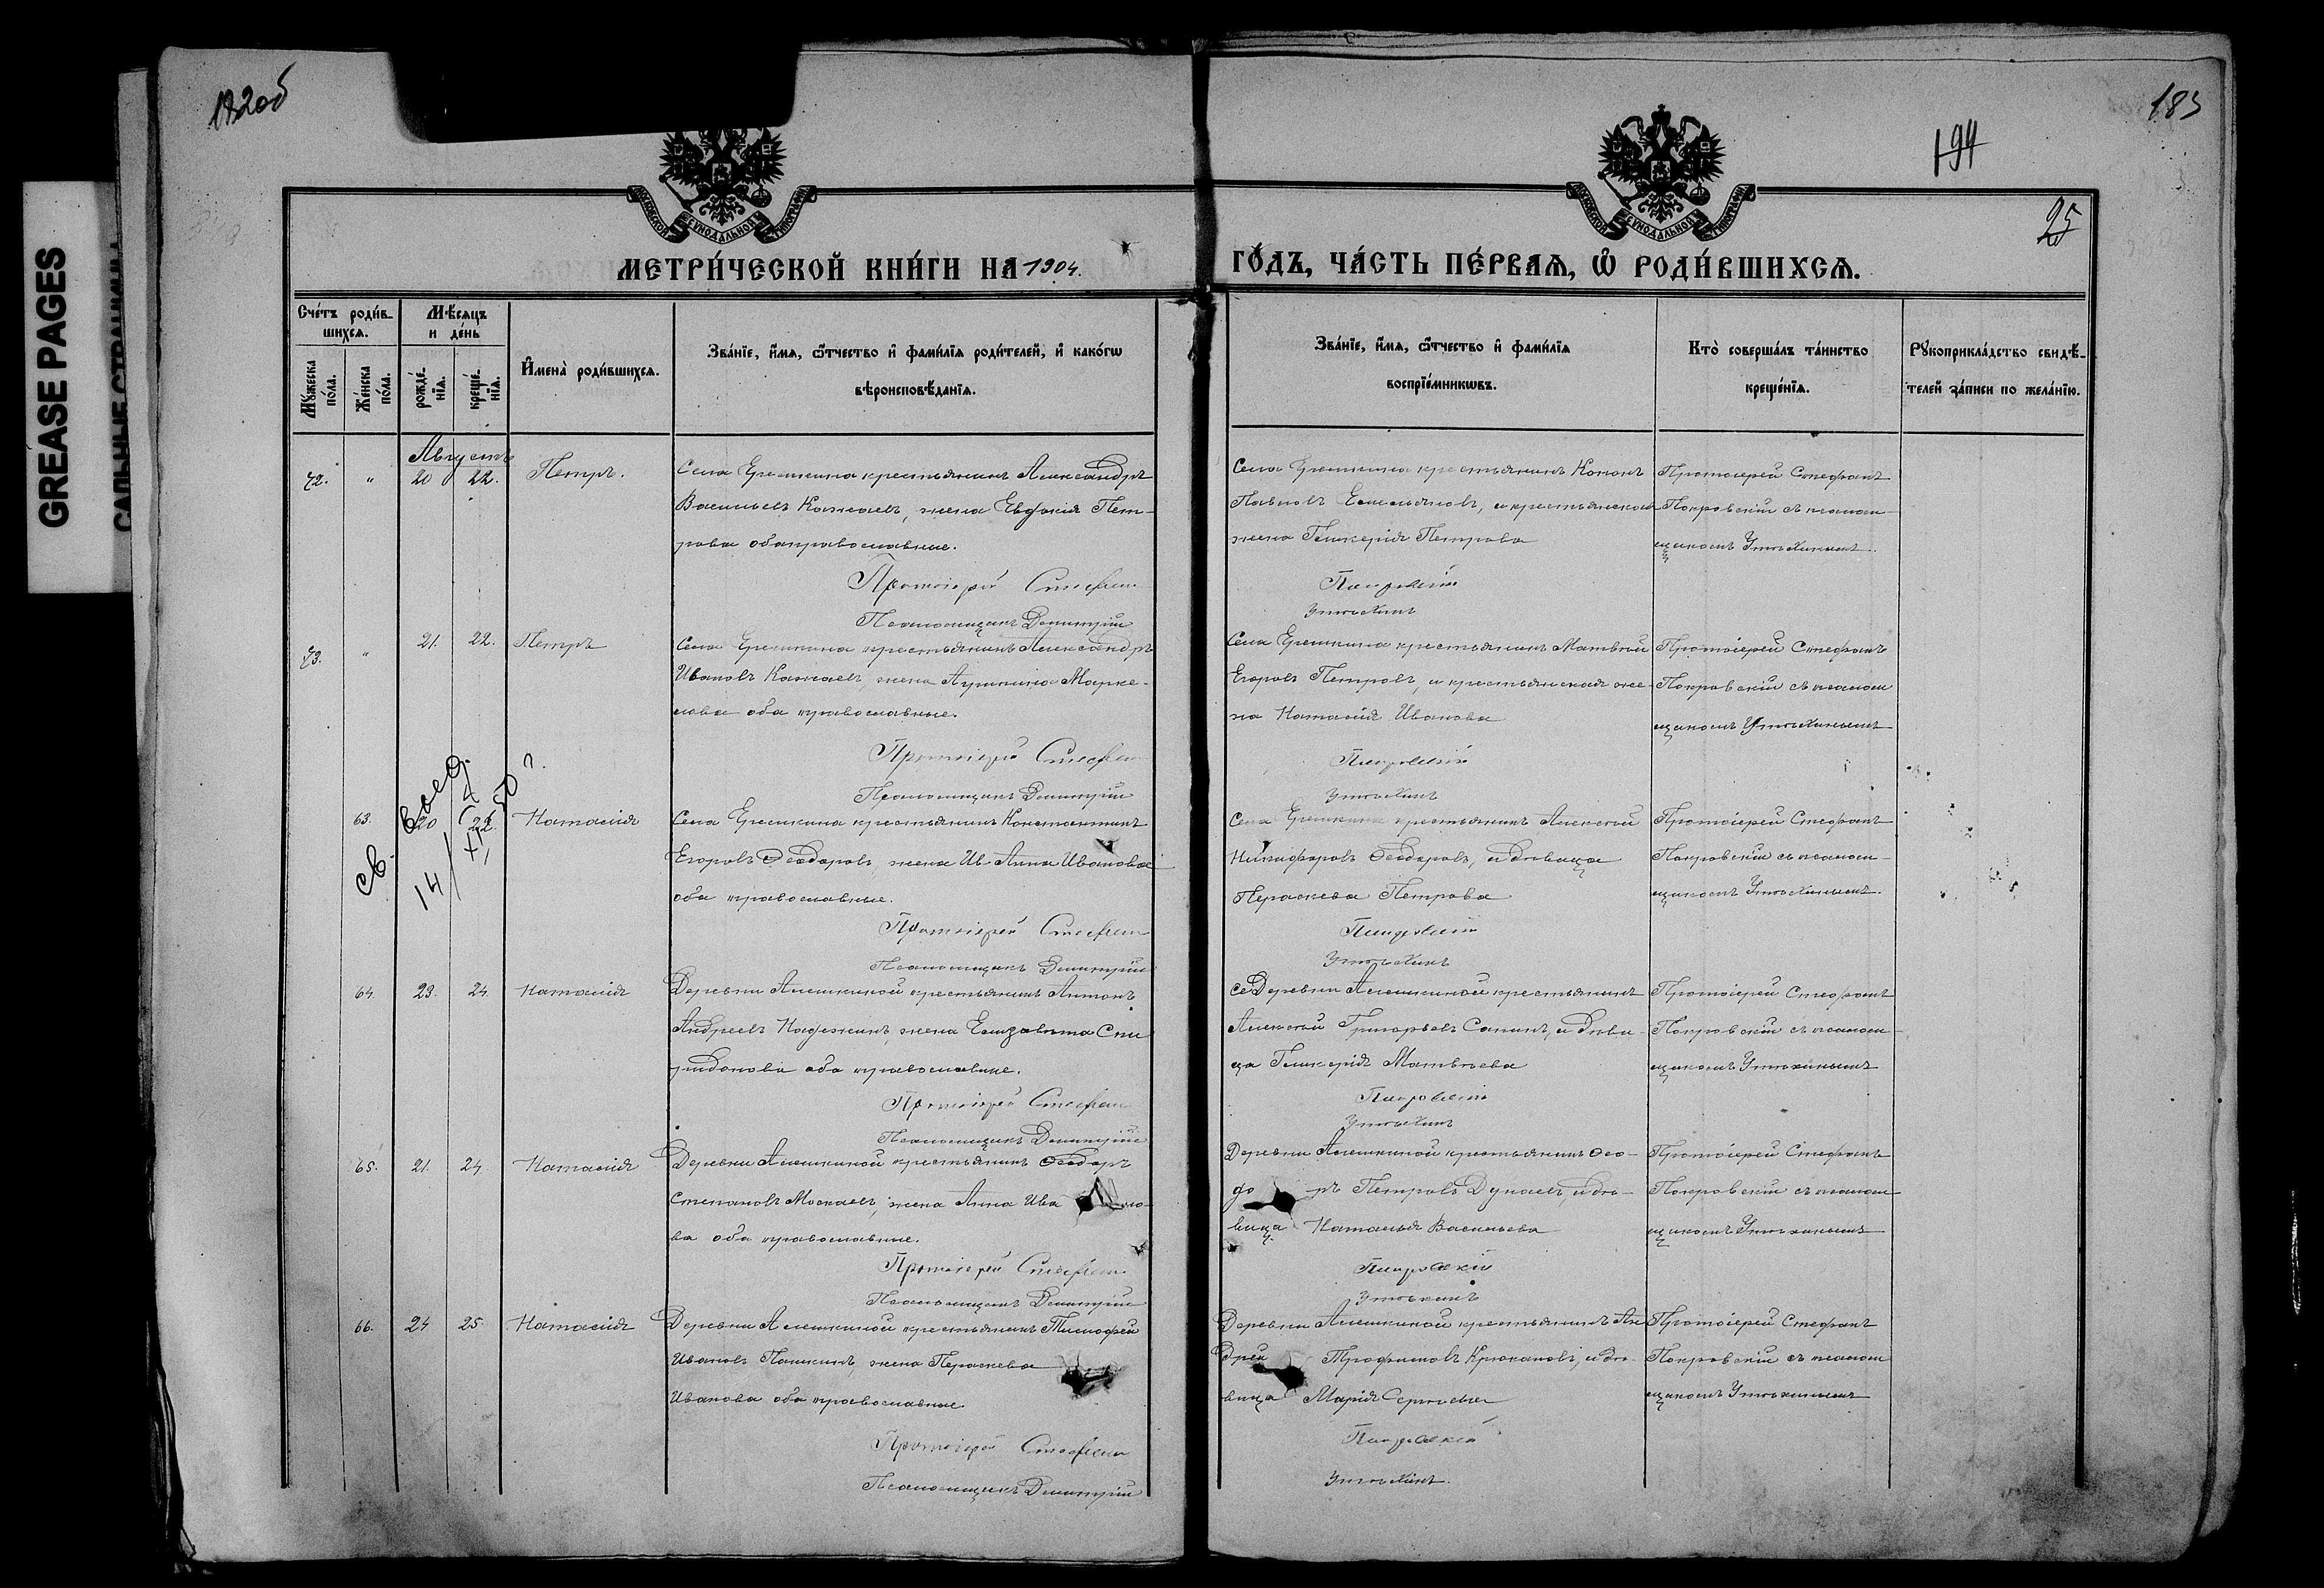 GREASE PAGES
САЛЬНЫЕ СТРАНИЦЫ
182об
183
194
25
МОСКОВСКОЙ СѴНОДАЛЬНОЙ ТИПОГРАФІИ
МОСКОВСКОЙ СѴНОДАЛЬНОЙ ТИПОГРАФІИ
МЕТРИ́ЧЕСКОЙ КНИ́ГИ НА 1904.
ГО́ДЪ, ЧА́СТЬ ПЕ́РВАЯ, Ѽ РОДИ́ВШИХСЯ.
Сче́тъ роди́в-
шихся.
Мꙋ́жеска по́ла.
Же́нска по́ла.
Мѣ́сяцъ
и де́нь
рожде́-
нїя.
креще́-
нїя.
И́мена̀ роди́вшихся.
Зва́нїе, и́мя, ѿтчество и фами́лїя роди́телей, и како́гѡ
вѣроисповѣ́данїя.
Зва́нїе, и́мя, ѿтчество и фами́лїя
воспрїе́мникѡвъ.
Кто̀ соверша́лъ та́инство
креще́нїя.
Рꙋкоприкла́дство свидѣ́-
телей за́писи по жела́нїю.
Августъ
72. " 20 22. Петръ.
Села Ерешкина крестьянинъ Александръ
Васильевъ Кажаевъ, жена Евфокія Пет-
рова оба православные.
Протоіерей Стефан
Псаломщикъ Димитрій
Села Ерешкина крестьянинъ Кононъ
Павловъ Емельяновъ, и крестьянская
жена Гликерія Петрова
Покровскій
Утѣхинъ
Протоіерей Стефанъ
Покровскій съ псалом-
щикомъ Утѣхинымъ.
73. " 21. 22. Петръ
Села Ерешкина крестьянинъ Александръ
Ивановъ Кажаевъ, жена Агрипина Марке-
лова оба православные.
Протоіерей Стефан
Псаломщикъ Димитрій
Села Ерешкина крестьянинъ Матвѣй
Егоровъ Петровъ, и крестьянская же-
на Наталія Иванова
Покровскій
Утѣхинъ
Протоіерей Стефанъ
Покровскій съ псалом
щикомъ Утѣхинымъ
63. 20 22. Наталія
св.
выд.
14/XI
Села Ерешкина крестьянинъ Константинъ
Егоровъ Ѳеодоровъ, жена Ив Анна Иванова
оба православные.
Протоіерей Стефан
Псаломщикъ Димитрій
Села Ерешкина крестьянинъ Алексѣй
Никифоровъ Ѳеодоровъ, и дѣвица
Параскева Петрова
Покровскій
Утѣхинъ
Протоіерей Стефанъ
Покровскій съ псалом-
щикомъ Утѣхинымъ.
64. 23. 24. Наталія
Деревни Алешкиной крестьянинъ Антонъ
Андреевъ Надежинъ, жена Елизавета Спи
ридонова оба православные.
Протоіерей Стефан
Псаломщикъ Димитрій
Се Деревни Алешкиной крестьянинъ
Алексѣй Григорьевъ Санинъ, и дѣви-
ца Гликерія Матвѣева
Покровскій
Утѣхинъ
Протоіерей Стефанъ
Покровскій съ псалом
щикомъ Утѣхинымъ
65. 21. 24. Наталія
Деревни Алешкиной крестьянинъ Ѳеодоръ
Степановъ Москаевъ, жена Анна Ива но-
ва оба православные.
Протоіерей Стефан
Псаломщикъ Димитрій
Деревни Алешкиной крестьянинъ Ѳео-
до ръ Петровъ Дунаевъ, и дѣ-
вица Наталья Васильева
Покровскій
Утѣхинъ
Протоіерей Стефанъ
Покровскій съ псалом
щикомъ Утѣхинымъ
66. 24 25. Наталія
Деревни Алешкиной крестьянинъ Тимофей
Ивановъ Пашкинъ, жена Параскева
Иванова оба православные.
Протоіерей Стефан
Псаломщикъ Димитрій
Деревни Алешкиной крестьянинъ Ан
дрей Трофимовъ Крюкановъ, и дѣ-
вица Марія Сергѣева
Покровскій
Утѣхинъ.
Протоіерей Стефанъ
Покровскій съ псалом
щикомъ Утѣхинымъ